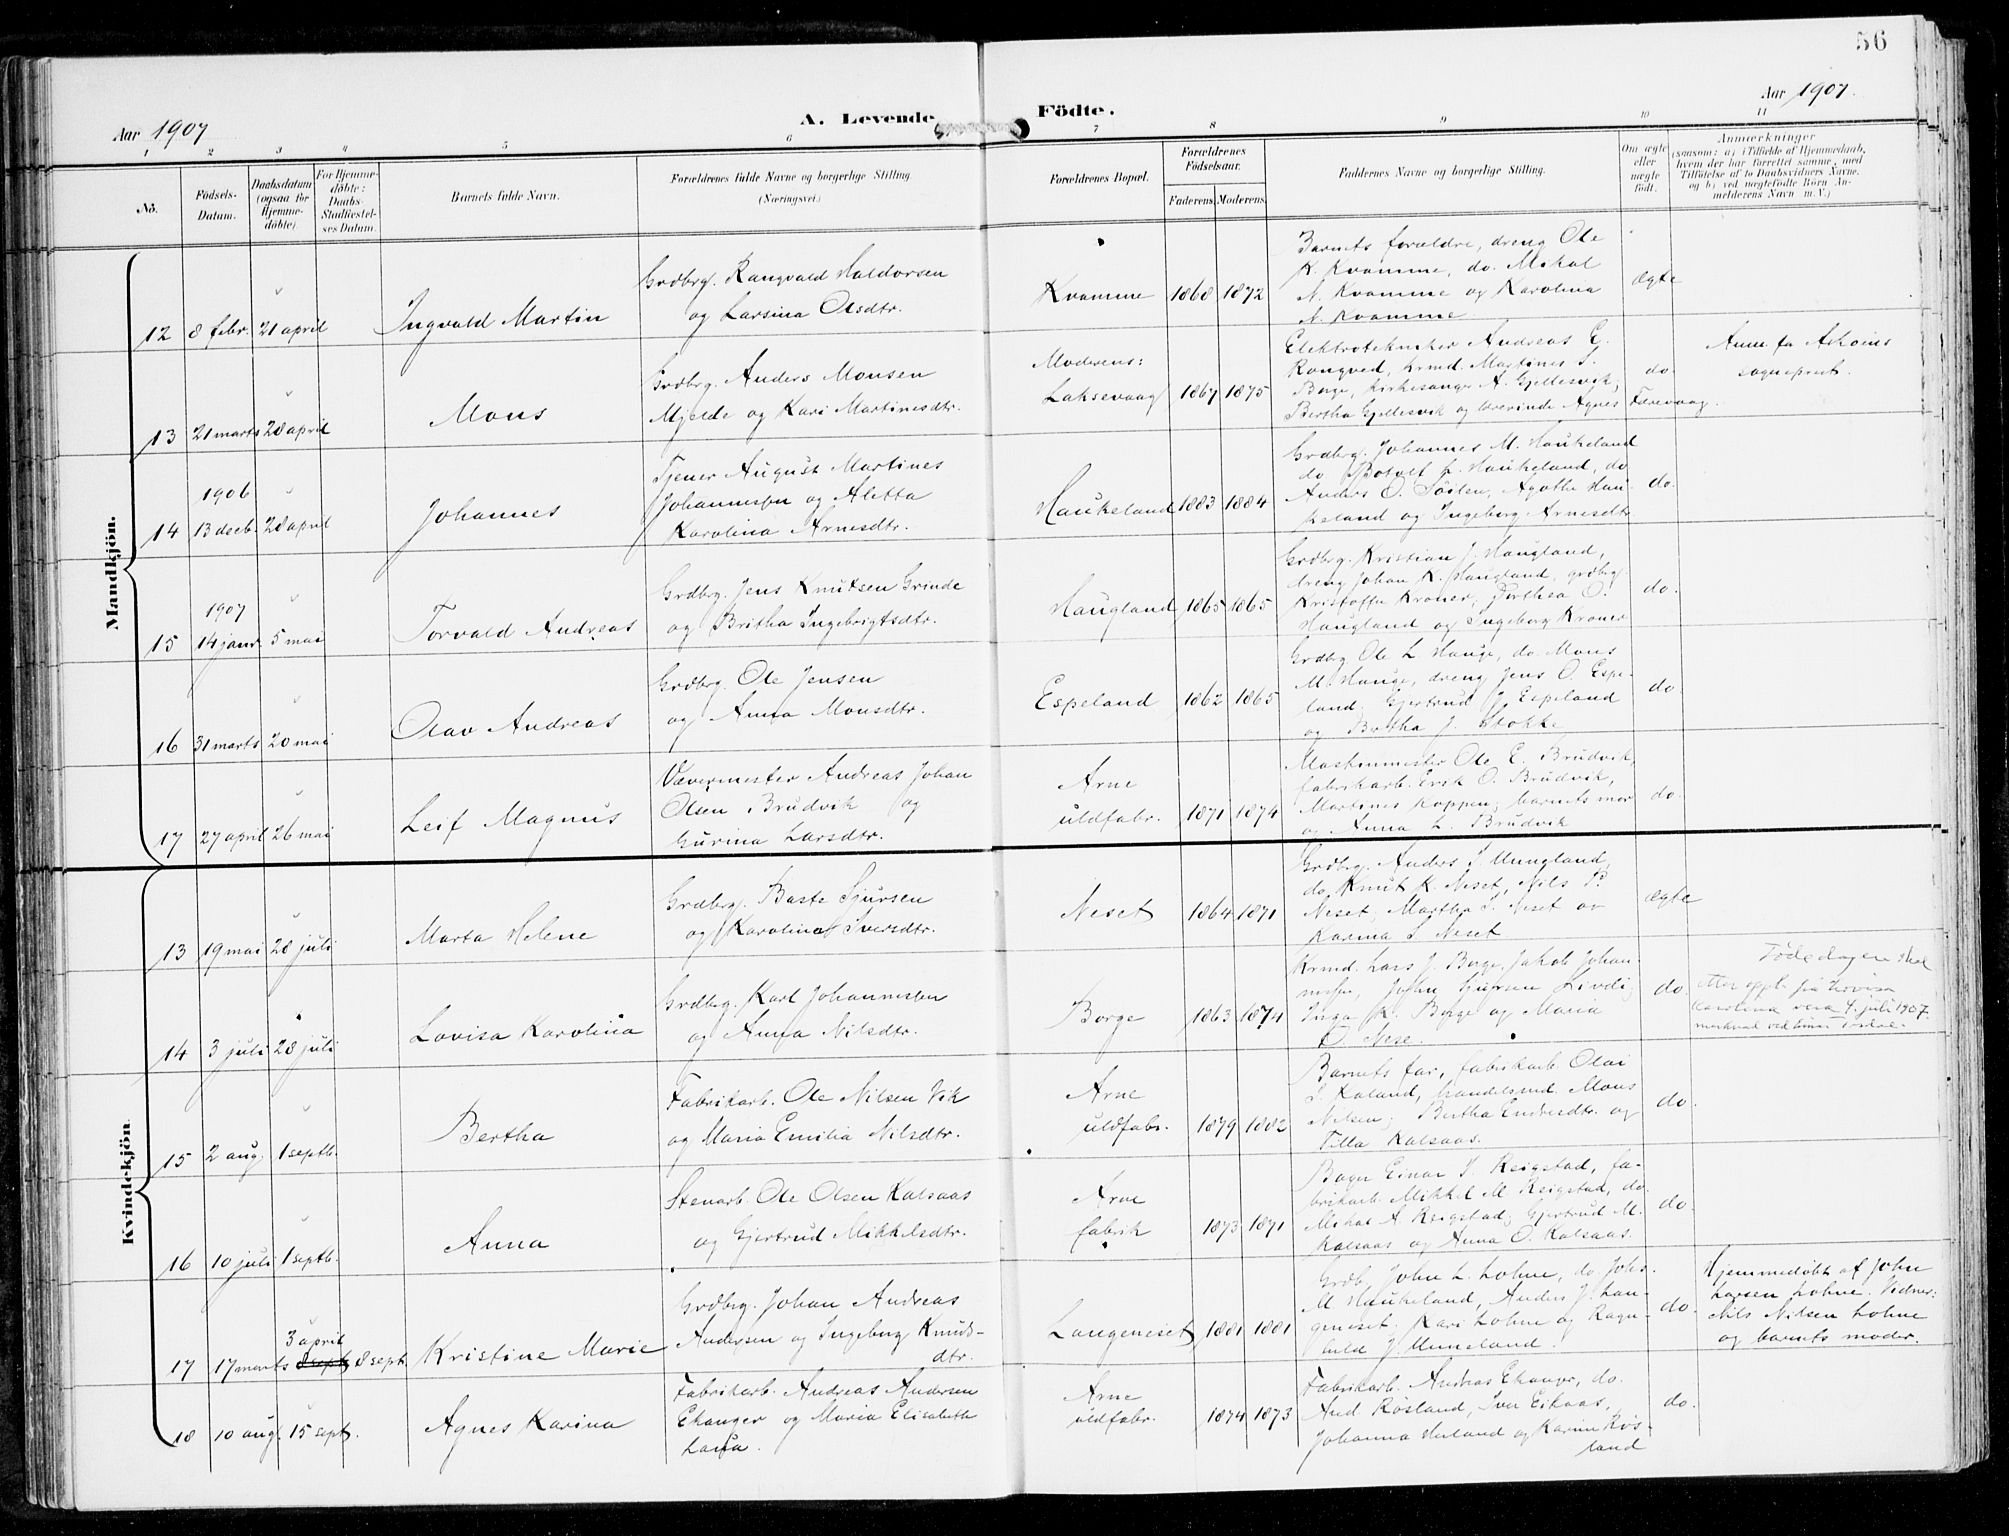 56
Aar 1907
A. Levende Födte.
Aar 1907.
1 2 3 4 5 6 7 8 9 10 11
No.
Födsels-
Datum.
Daabsdatum
(ogsaa for
Hjemme-
döbte)
For Hjemme-
döbte:
Daabs-
Stadfæstel-
ses Datum.
Barnets fulde Navn.
Forældrenes fulde Navne og borgerlige Stilling
(Næringsvei.)
Forældrenes Bopæl.
Forældrenes
Födselsaar.
Faderens. Moderens.
Faddernes Navne og borgerlige Stilling.
Om ægte
eller
uægte
födt.
Anmærkninger
(saasom: a) i Tilfælde af Hjemmedaab,
hvem der har forrettet samme, med
Tilföielse af to Daabsvidners Navne,
og b) ved uægtefödte Börn An-
melderens Navn m.V.)
Mandkjön.
12 8 febr. 21 april
Ingvald Martin
Grdbrg. Rangvald Haldorsen
og Larsina Olsdtr.
Kvamme 1868 1872
Barnets forældre, dreng Ole
K. Kvamme, do. Mikal
N. Kvamme og Karolina
N. Kvamme
ægte
13 21 marts 28 april
Mons
Grdbrg. Anders Monsen
Mjelde og Kari Martinesdtr.
Moderens:
Laksevaag 1867 1875
Elektrotekniker Andreas E.
Rongved, krmd. Martines S.
Borge, kirkesanger A. Gjellesvik,
Bertha Gjellesvik og lærerinde Agnes Færevaag.
do.
Anm. fr. Askøens
sogneprest.
14 1906
13 decb. 28 april
Johannes
Tjener August Martines
Johannessen og Aletta
Karolina Arnesdtr.
Haukeland 1883 1884
Grdbrg. Johannes M. Haukeland
do Botolf L. Haukeland, do
Anders O. Söilen, Agathe Hau-
keland og Ingeborg Arnesdtr
do.
15 1907
14 janr. 5 mai
Torvald Andreas
Grdbrg. Jens Knutsen Grinde
og Britha Ingebrigtsdtr.
Haugland 1865 1865
Grdbrg. Kristian J. Haugland,
dreng Johan K. Haugland, grdbrg.
Kristoffer Kroner, Dorthea O.
Haugland og Ingeborg Kroner
do.
16 31 marts 20 mai
Olav Andreas
Grdbrg. Ole Jensen
og Anna Monsdtr.
Espeland 1862 1865
Grdbrg Ole L. Hauge, do. Mons
M. Hauge, dreng Jens O. Espe-
land, Gjertrud J. Espeland
og Bertha J. Stokke
do.
17 27 april 26 mai
Leif Magnus
Vævermester Andreas Johan
Olsen Brudvik og
Gurina Larsdtr.
Arne
uldfabr. 1871 1874
Maskinmester Ole E. Brudvik,
fabrikarb. Erik O. Brudvik,
Martines Koppen, barnets mor
og Anna L. Brudvik
do.
Kvindekjön.
13 19 mai 28 juli
Marta Helene
Grdbrg. Baste Sjursen
og Karolina Iversdtr.
Neset 1864 1871
Grdbrg. Anders S. Unneland,
do. Knut K. Neset, Nils P.
Neset, Martha S. Neset og
Karina S. Neset
ægte
14 3 juli 28 juli
Lovisa Karolina
Grdbrg. Karl Johannessen
og Anna Nilsdtr.
Borge 1863 1874
Krmd. Lars J. Borge, Jakob Johan-
nessen, John Gjersen Livdi,
Inga K. Borge og Maria
O. Nese.
do.
Fødedagen skal
etter oppl. frå Lovisa
Karolina vera 4. juli 1907.
15 2 aug. 1 septb.
Bertha
Fabrikarb. Ole Nilsen Vik
og Maria Emilia Nilsdtr.
Arne
uldfabr. 1879 1882
Barnets far, fabrikarb Olai
S. Kaland, handelsmd. Mons
Nilsen, Bertha Endresdtr. og
Tilla Kalsaas.
do.
16 10 juli 1 septb.
Anna
Stenarb. Ole Olsen Kalsaas
og Gjertrud Mikkelsdtr.
Arne
fabrik 1873 1871
Bager Einar I. Reigstad, fa-
brikarb Mikkel M Reigstad, do.
Mikal A. Reigstad, Gjertrud M.
Kalsaas og Anna O. Kalsaas.
do.
17 17 marts 3 april 8 sept. 8 sept.
Kristine Marie
Grdbrg. Johan Andreas
Andersen og Ingeborg Knuds-
dtr.
Langeneset 1881 1881
Grdb. John L. Lohne, do. Johs.
M. Haukeland, Anders J. Lan-
geneset, Kari Lohne og Ragn-
hild J. Unneland.
do.
Hjemmedöbt af John
Larsen Lohne. Vidner:
Nils Nilsen Lohne
og barnets moder.
18 10 aug. 15 sept.
Agnes Karina
Fabrikarb. Andreas Andersen
Ekanger og Maria Elisabeth
Arne
uldfabr. 1874 1873
Fabrikarb. Andreas Ekanger, do.
And. Rösland, Iver Eikaas,
Johanna Herland og Karine Rös-
land
do.